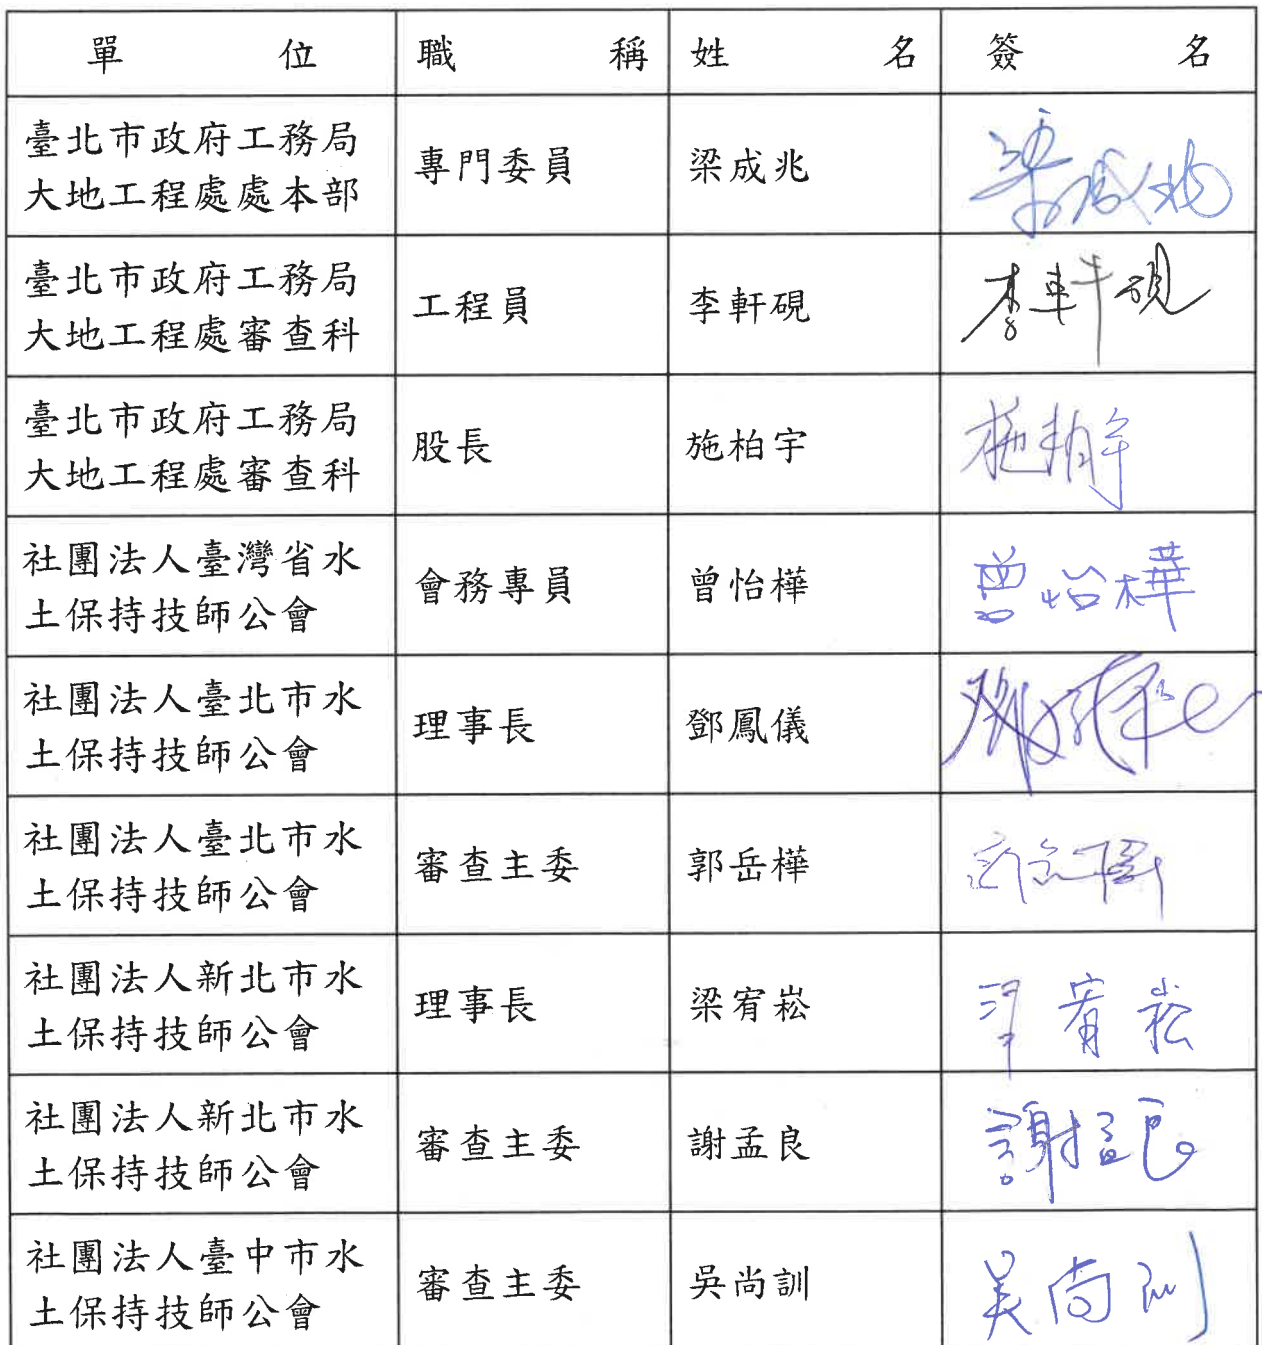 單位 職稱 姓名 簽名
臺北市政府工務局
大地工程處處本部 專門委員 梁成兆 梁成兆
臺北市政府工務局
大地工程處審查科 工程員 李軒硯 李軒硯
臺北市政府工務局
大地工程處審查科 股長 施柏宇 施柏宇
社團法人臺灣省水
土保持技師公會 會務專員 曾怡樺 曾怡樺
社團法人臺北市水
土保持技師公會 理事長 鄧鳳儀
社團法人臺北市水
土保持技師公會 審查主委 郭岳樺
社團法人新北市水
土保持技師公會 理事長 梁宥崧 梁宥崧
社團法人新北市水
土保持技師公會 審查主委 謝孟良 謝孟良
社團法人臺中市水
土保持技師公會 審查主委 吳尚訓 吳尚訓